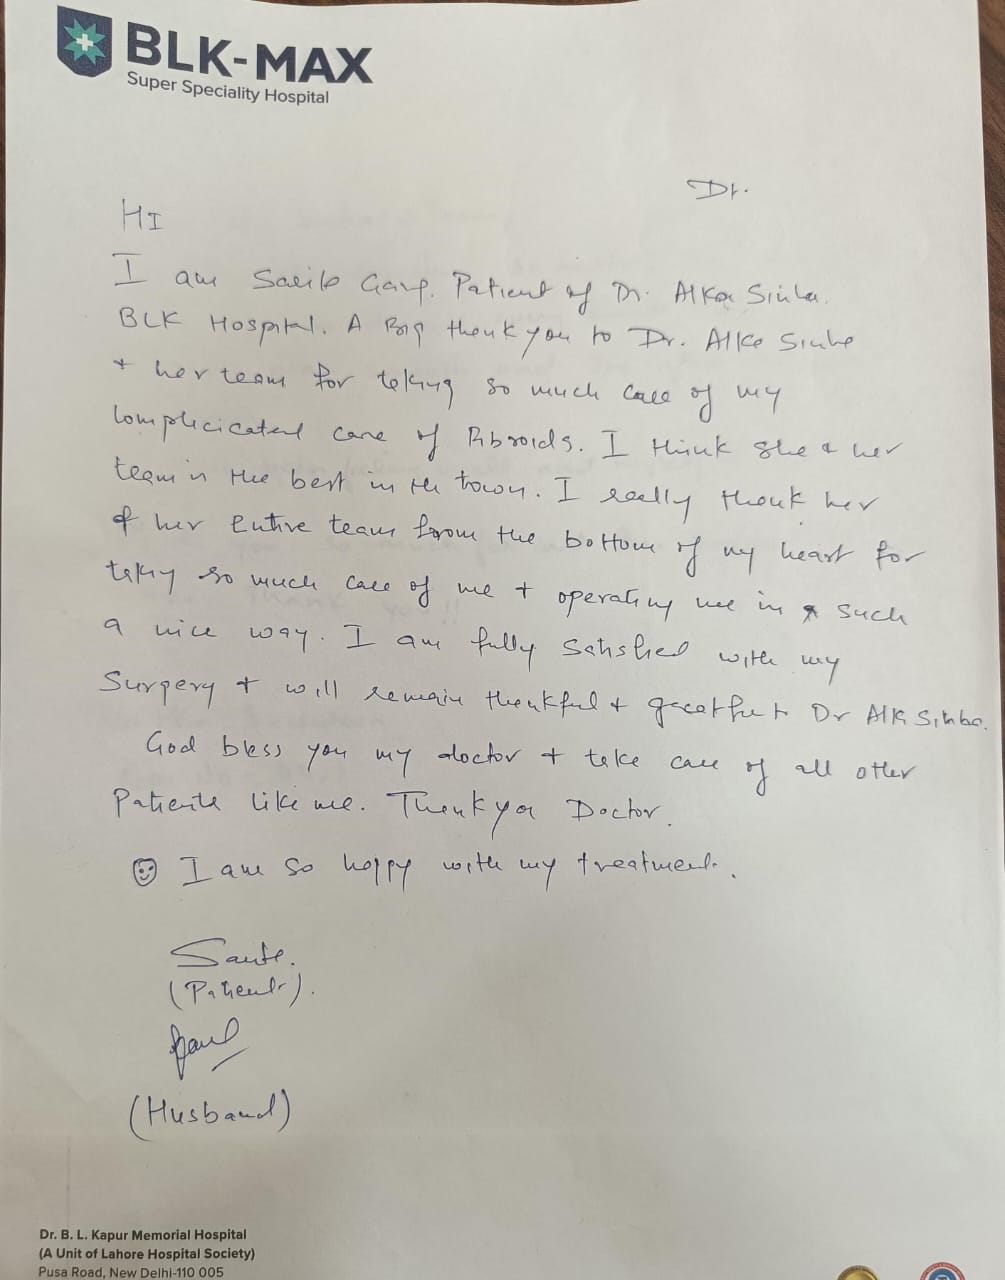 BLK-MAX
Super Speciality Hospital
Dt.
HI
I am Garg. Patient of Dr. Alka Sinha.
BLK Hospital. A Big thank you to Dr. Alka Sinha
+ her team for taking so much care of my
complicicated case of Fibroids. I think she & her
team is the best in the town. I really thank her
& her entire team from the bottom of my heart for
taking so much care of me + operating me in such
a nice way. I am fully satisfied with my
Surgery + will remain thankful + greatful to Dr Alka Sinha.
God bless you my doctor + take care of all other
Patients like me. Thank you Doctor.
I am so happy with my treatment.
(Patient).
(Husband)
Dr. B. L. Kapur Memorial Hospital
(A Unit of Lahore Hospital Society)
Pusa Road, New Delhi-110 005